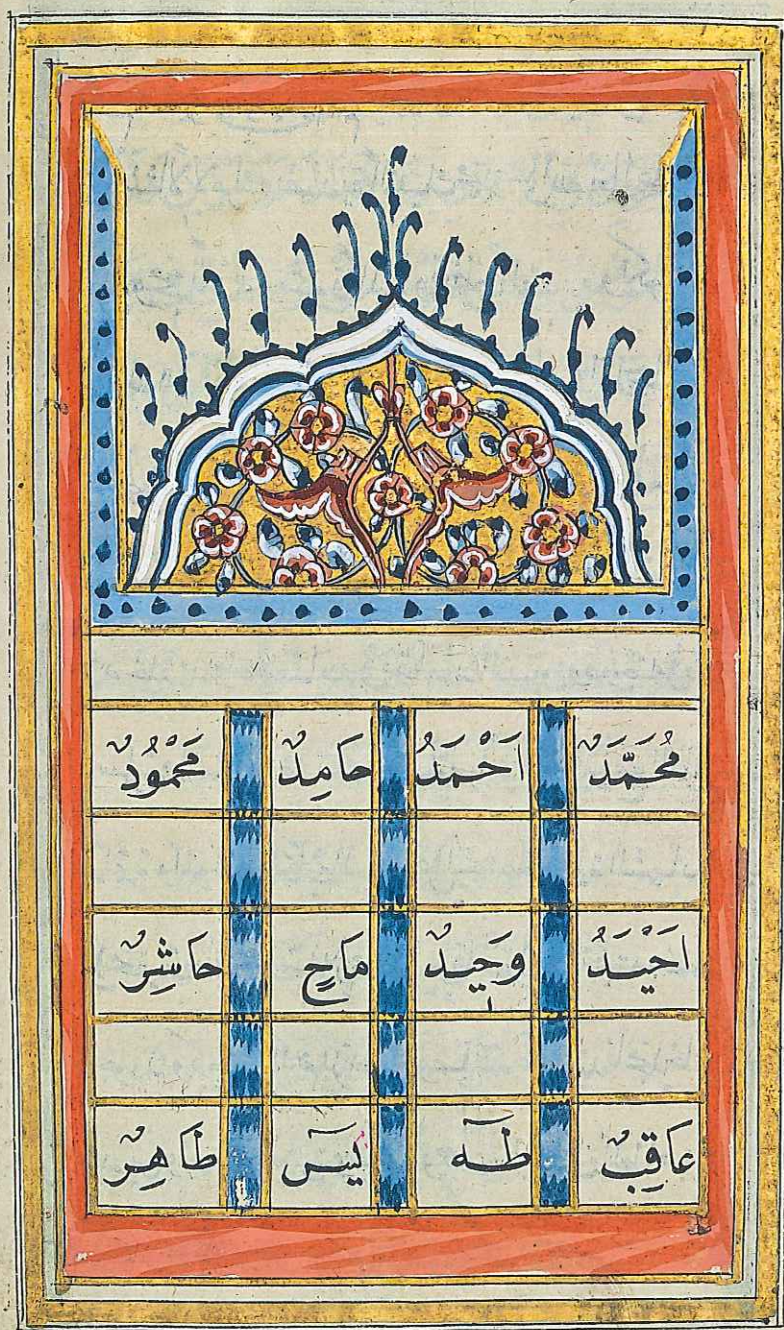 مُحَمَّدٌ اَحْمَدُ حَامِدٌ مَحْمُودٌ
اَحْيَدُ وَحِيدٌ مَاحٍ حَاشِرٌ
عَاقِبٌ طٰهٓ يٰسٓ طَاهِرٌ